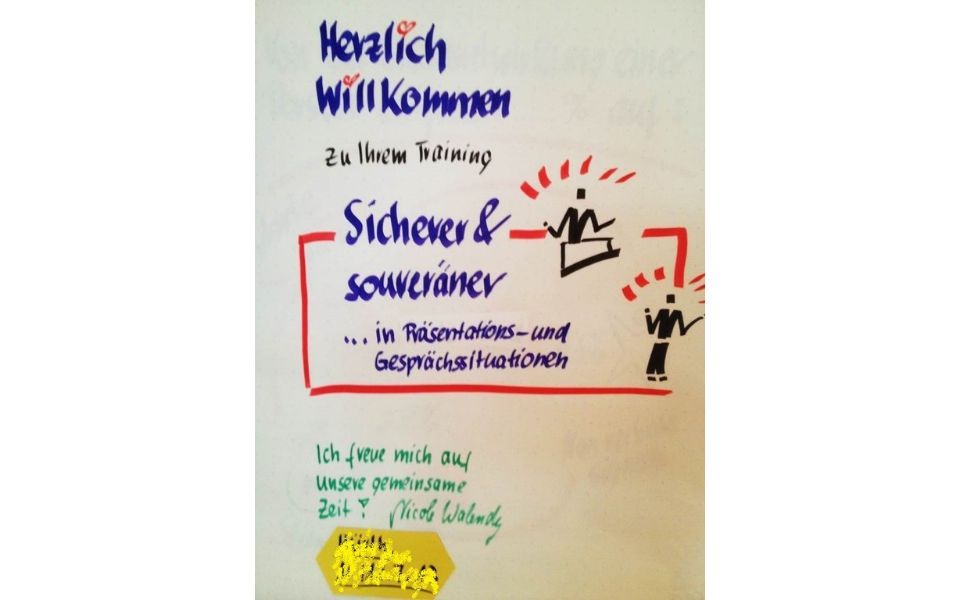 Herzlich
Willkommen
zu Ihrem Training
Sicherer &
souveräner
... in Präsentations- und
Gesprächssituationen
Ich freue mich auf
unsere gemeinsame
Zeit! Nicole Walendy